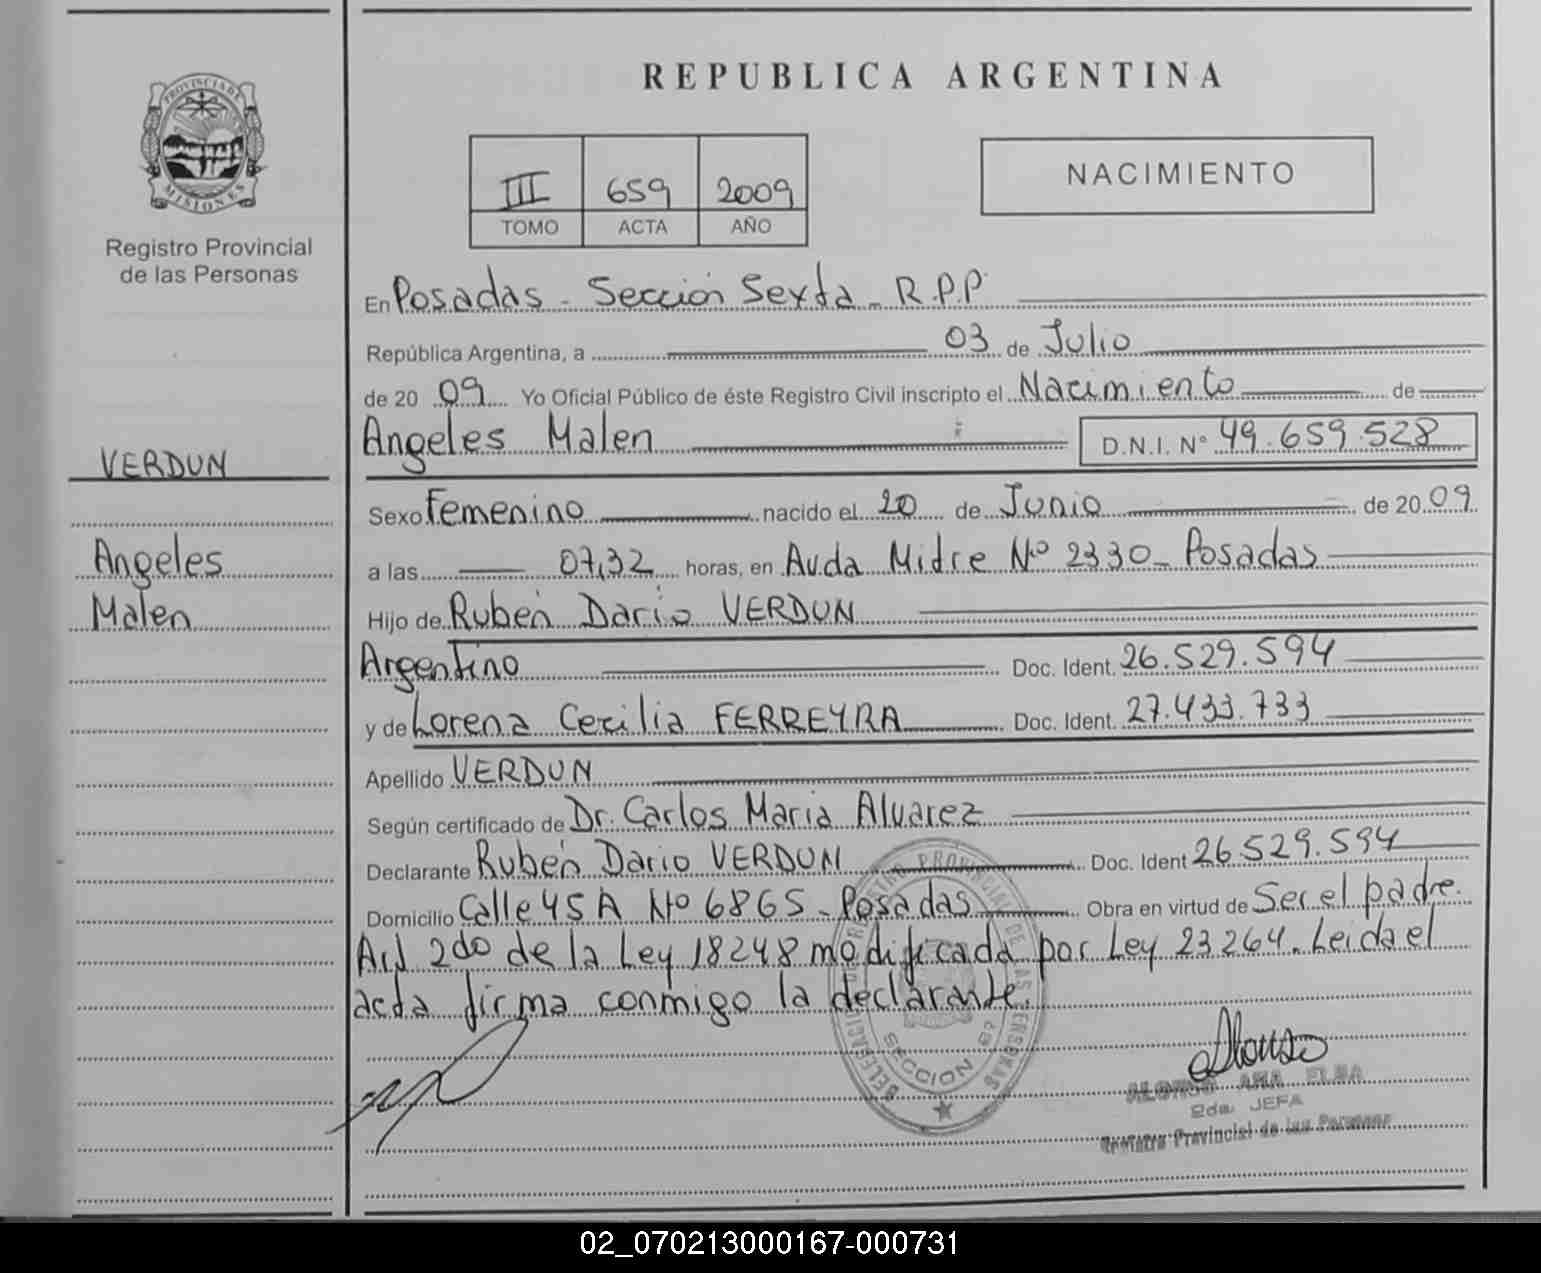 PROVINCIA DE
MISIONES
Registro Provincial
de las Personas
VERDUN
Angeles
Malen
REPUBLICA ARGENTINA
III 659 2009
TOMO ACTA AÑO
NACIMIENTO
En Posadas - Sección Sexta - R.P.P
República Argentina, a 03 de Julio
de 20 09 Yo Oficial Público de éste Registro Civil inscripto el Nacimiento de
Angeles Malen D.N.I. Nº 49.659.528
Sexo Femenino nacido el 20 de Junio de 20 09
a las 07,32 horas, en Avda Mitre Nº 2330 - Posadas
Hijo de Rubén Darío VERDUN
Argentino Doc. Ident. 26.529.594
y de Lorena Cecilia FERREYRA Doc. Ident. 27.433.733
Apellido VERDUN
Según certificado de Dr. Carlos Maria Alvarez
Declarante Rubén Dario VERDUN Doc. Ident 26.529.594
Domicilio Calle 45 A Nº 6865 - Posadas Obra en virtud de Ser el padre.
Art 2do de la Ley 18248 modificada por Ley 23264. Leida el
acta firma conmigo la declarante.
SECCION 6ª
Alonso
ALONSO ANA ELBA
2da. JEFA
Registro Provincial de las Personas
02_070213000167-000731